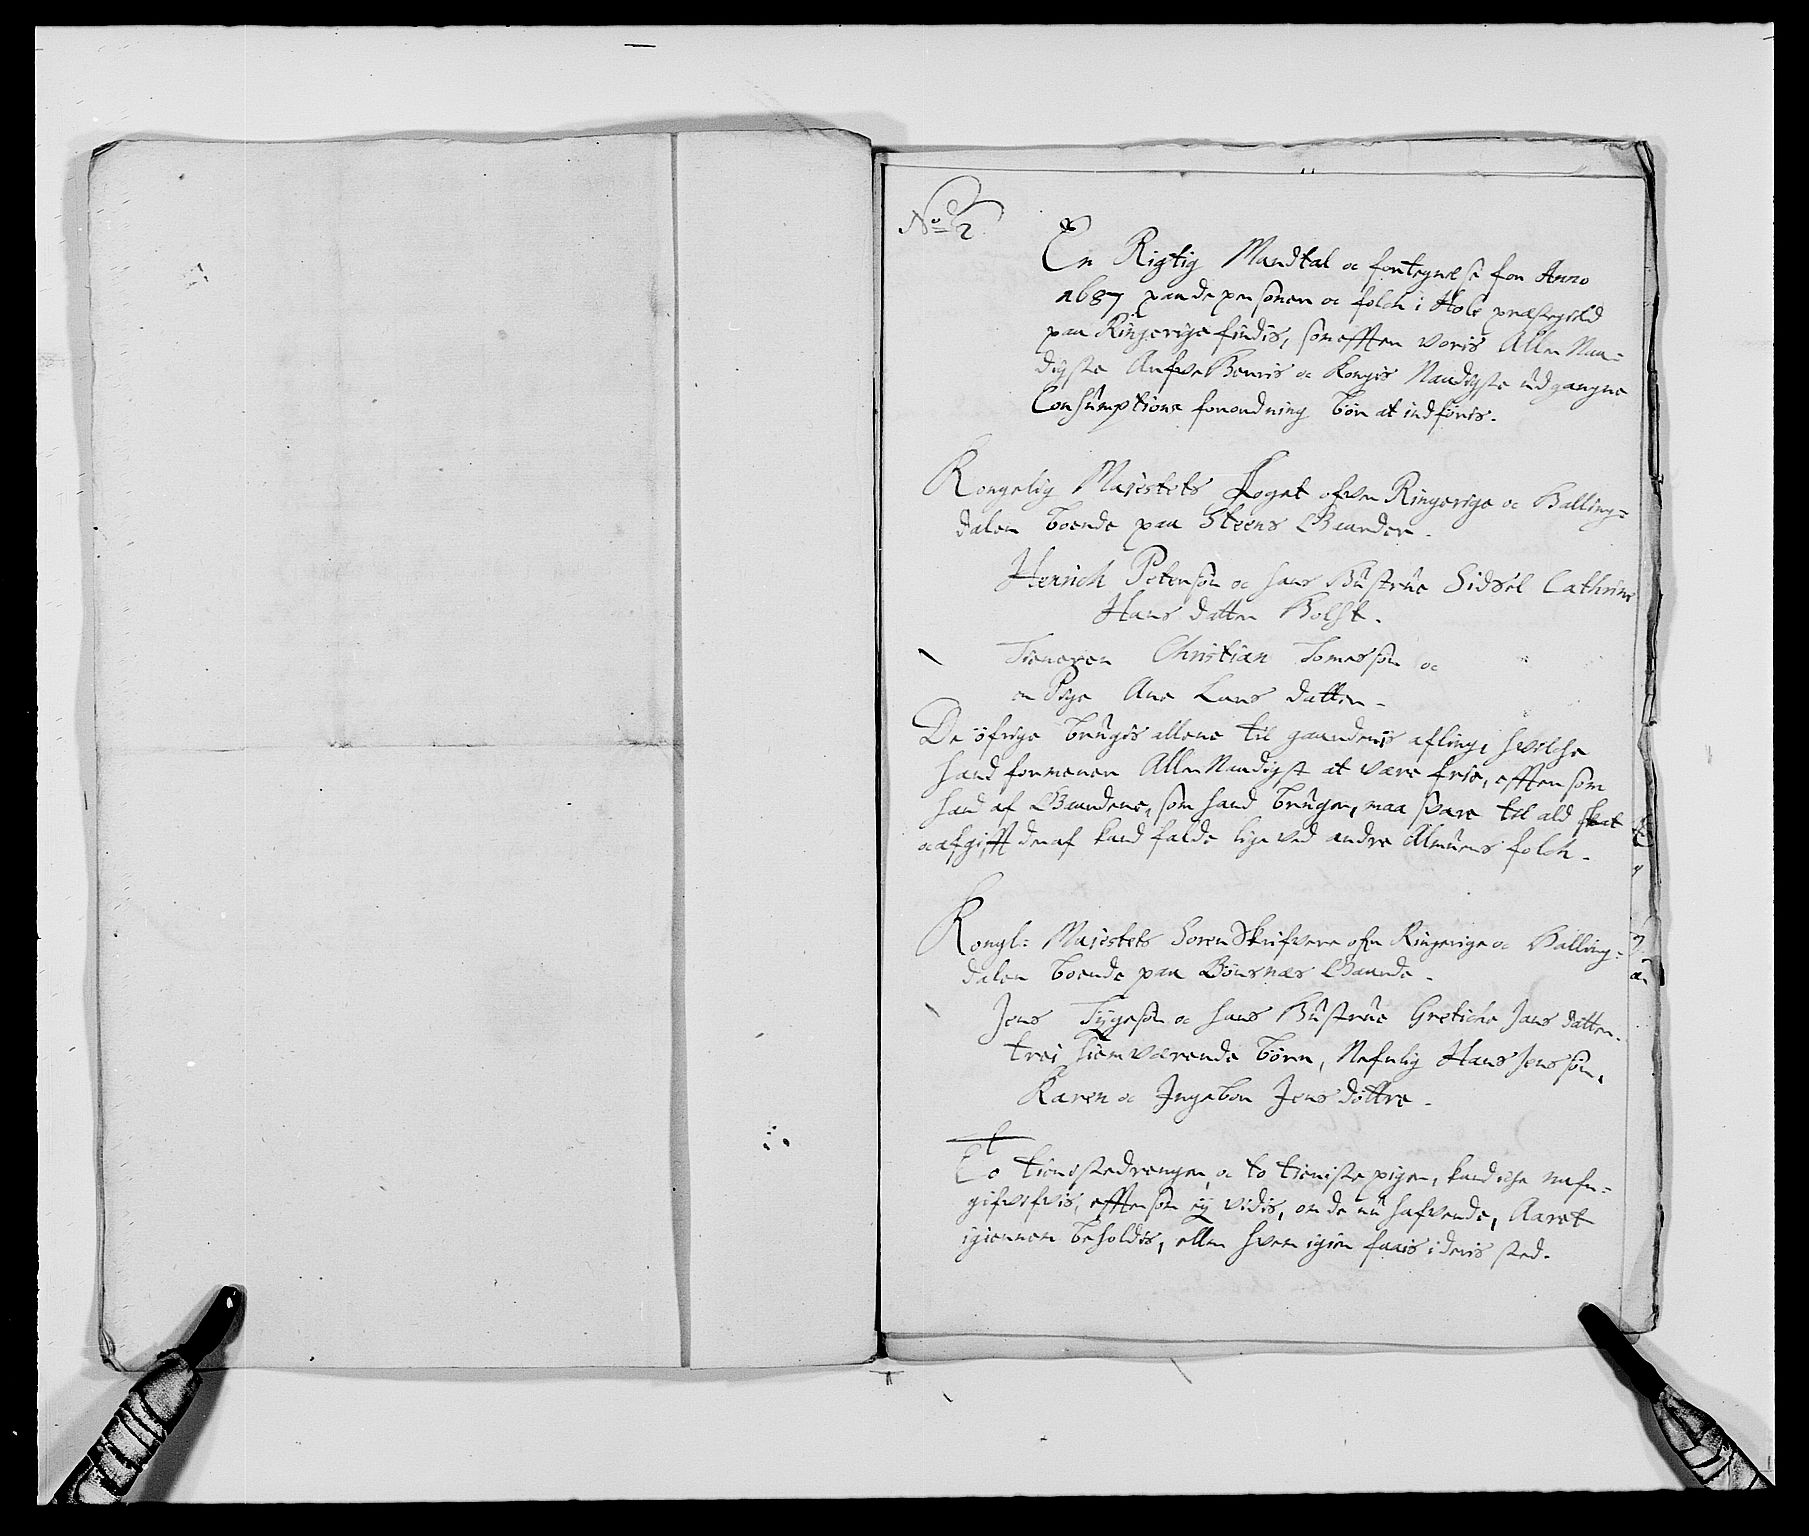 No 2.
En Rigtig Mandtal oc fortegnelse for Anno
1687 paa de personer oc folch i Hole præstegield
paa Ringerige findis, som effter voris Aller Naa-
digste Arfve Herris oc Kongis Naadigste udgangne
Consumptions forordning bør at indføris.
Kongelig Majestets Foget ofver Ringerige oc Halling-
dalen boende paa Steens Gaarder.
Henrich Petersøn oc hans Hustrue Sidsel Cathrine
Hans datter Holst.
Tieneren Christian Tomessøn oc
en Pige Ane Lars datter.
De øfrige brugis allene til gaardens afling, hvilche
hand formener Aller Naadigst at være frie, efftersom
hand af Gaardene, som hand bruger, maa svare til ald skat
oc afgifft deraf kand falde lige ved andre Almues folch.
Kongl: Majestets Sorenskrifvere ofver Ringerige oc Halling-
dalen boende paa Bønsnæs Gaarde.
Jens Tygesøn oc hans Hustrue Gretiche Jans datter.
trei hiemværende børn, Nefnlig Hans Jenssøn,
Karen oc Ingebor Jens døttre.
To tienistedrenger, oc to tieniste piger, kand iche nafn-
gifvefvis, efftersom ej vidis, om de nu hafvende, Aaret
igiennem beholdis, eller hvem igien faais i deris sted.